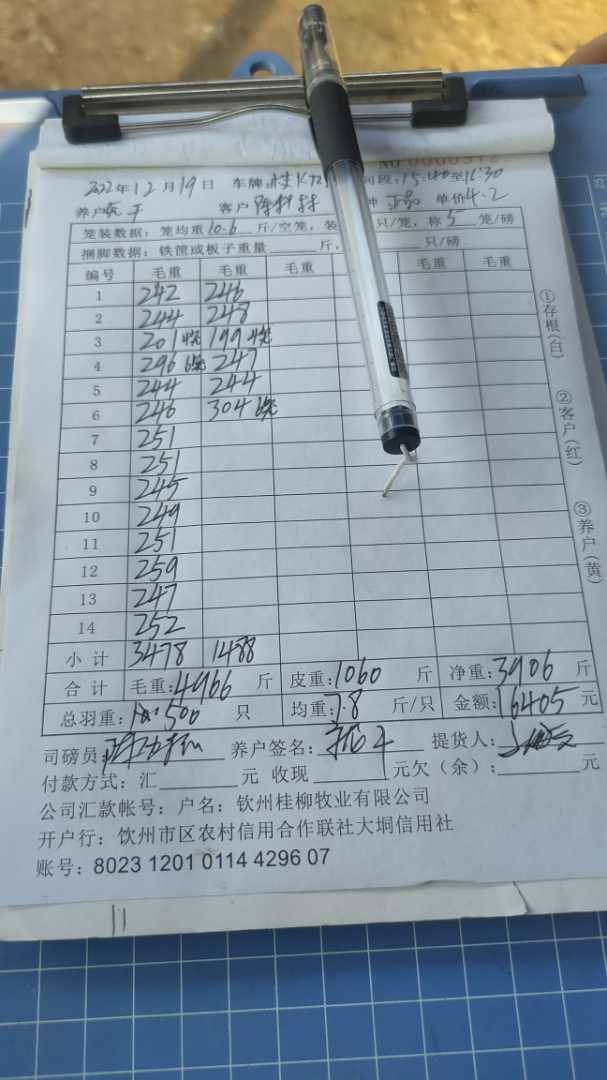 NO 0000312
2022年12月19日 车牌: 时间段:15:40至16:30
养户 客户 种 正品 单价4.2
笼装数据:笼均重10.6斤/空笼,装 只/笼,称5笼/磅
捆脚数据:铁筐或板子重量 斤, 只/磅
编号 毛重 毛重 毛重 毛重 毛重
1 242 246
2 244 248
3 201 199
4 296 247
5 244 244
6 246 304
7 251
8 251
9 245
10 249
11 251
12 259
13 247
14 252
小计 3478 1488
合计 毛重:4966斤 皮重:1060斤 净重:3906斤
总羽重:500只 均重:7.8斤/只 金额:16405元
司磅员: 养户签名: 提货人:
付款方式:汇 元 收现 元欠(余): 元
公司汇款帐号:户名:钦州桂柳牧业有限公司
开户行:钦州市区农村信用合作联社大垌信用社
账号:8023 1201 0114 4296 07
①存根(白)
②客户(红)
③养户(黄)